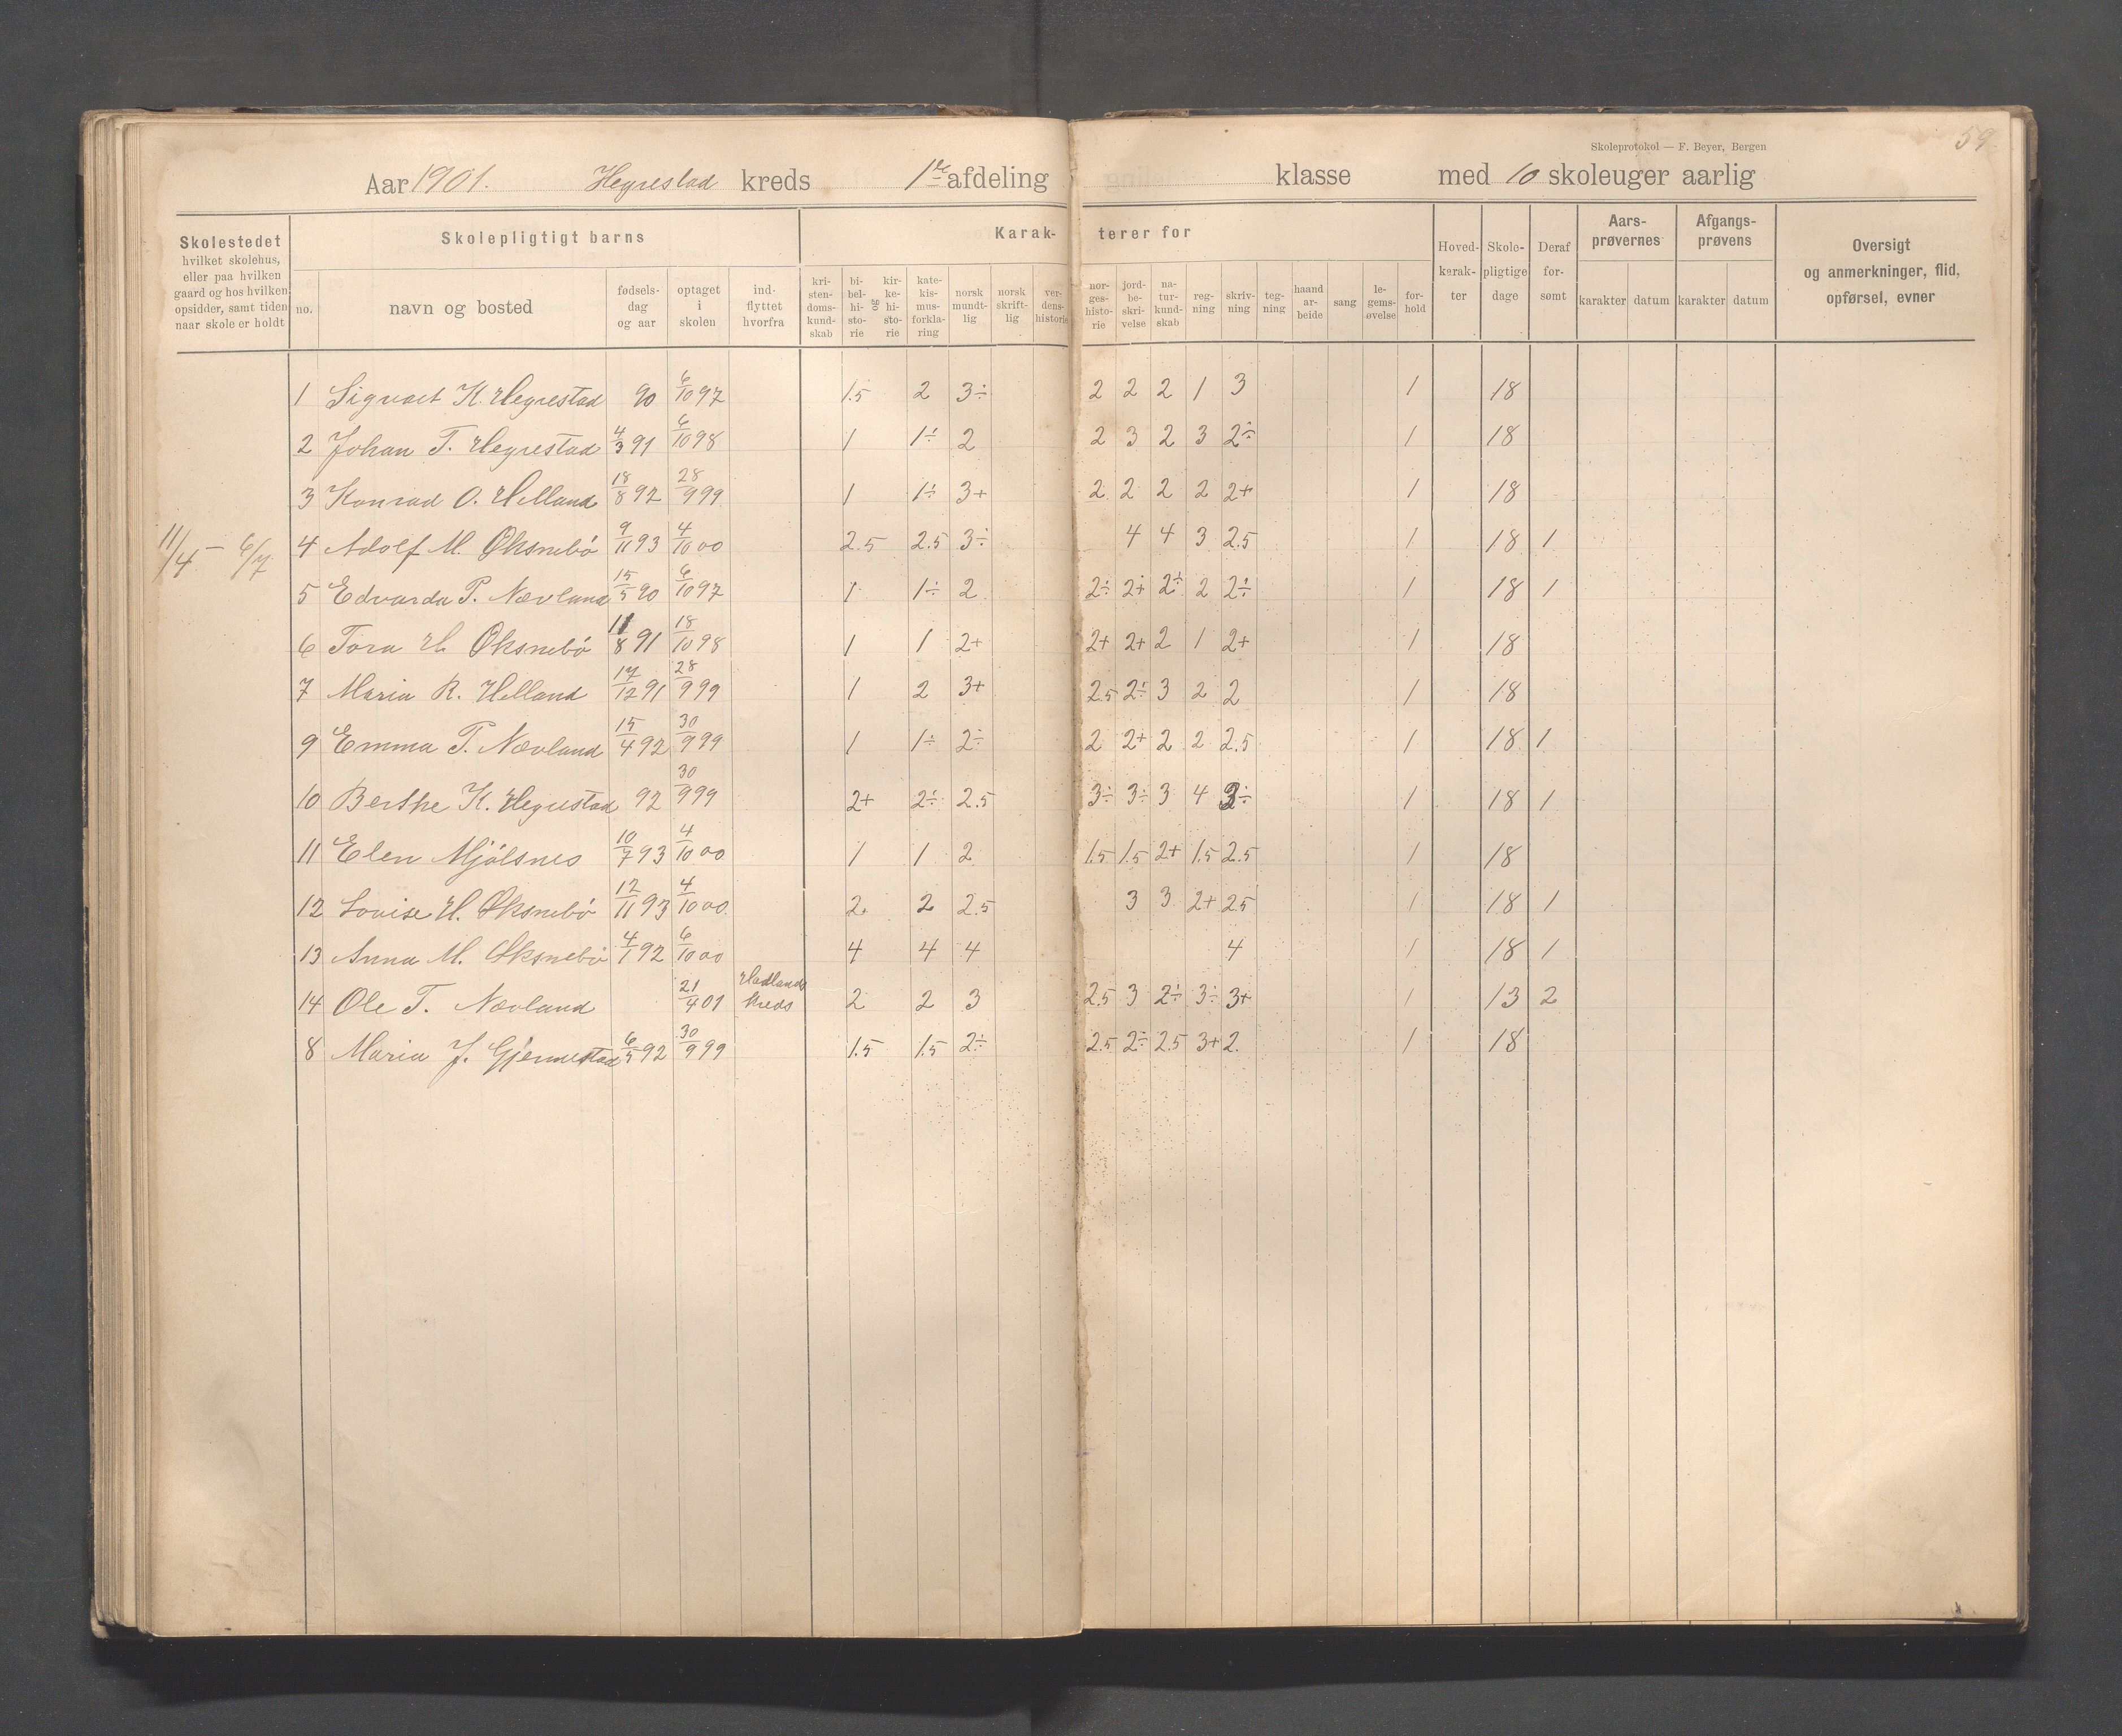 59.
Skoleprotokol — F. Beyer, Bergen
Aar 1901. Hegrestad kreds 1ste afdeling klasse med 10 skoleuger aarlig
Skolestedet hvilket skolehus, eller paa hvilken gaard og hos hvilken opsidder, samt tiden naar skole er holdt
Skolepligtigt barns
Karak- terer for
Hoved-karak-ter
Skole-pligtige dage
Deraf for-sømt
Aars-prøvernes
Afgangs-prøvens
Oversigt og anmerkninger, flid, opførsel, evner
no. navn og bosted fødsels-dag og aar optaget i skolen ind-flyttet hvorfra kri-sten-doms-kund-skab bi-bel-hi-sto-rie og kir-ke-hi-sto-rie kate-kis-mus-forkla-ring norsk mundt-lig norsk skrift-lig ver-dens-historie nor-ges-histo-rie jord-be-skri-velse na-tur-kund-skab reg-ning skriv-ning teg-ning haand ar-beide sang le-gems-øvelse for-hold karakter datum karakter datum
1 Sigvart K. Hegrestad 90 6/10 97 1.5 2 3÷ 2 2 2 1 3 1 18
2 Johan T. Hegrestad 4/3 91 6/10 98 1 1÷ 2 2 3 2 3 2÷ 1 18
3 Konrad O. Helland 18/8 92 28/9 99 1 1÷ 3+ 2 2 2 2 2+ 1 18
11/4 – 6/7 4 Adolf M. Øksnebø 9/11 93 4/10 00 2.5 2.5 3÷ 4 4 3 2.5 1 18 1
5 Edvarda P. Nævland 15/5 90 6/10 97 1 1÷ 2 2÷ 2+ 2÷ 2 2÷ 1 18 1
6 Tora H. Øksnebø 11/8 91 18/10 98 1 1 2+ 2+ 2+ 2 1 2+ 1 18
7 Maria R. Helland 17/12 91 28/9 99 1 2 3+ 2.5 2÷ 3 2 2 1 18
9 Emma P. Nævland 15/4 92 30/9 99 1 1÷ 2÷ 2 2+ 2 2 2.5 1 18 1
10 Berthe K. Hegrestad 92 30/9 99 2+ 2÷ 2.5 3÷ 3÷ 3 4 3÷ 1 18 1
11 Elen Mjølsnes 10/7 93 4/10 00 1 1 2 1.5 1.5 2+ 1.5 2.5 1 18
12 Lovise H. Øksnebø 12/11 93 4/10 00 2 2 2.5 3 3 2+ 2.5 1 18 1
13 Anna M. Øksnebø 4/1 92 6/10 00 4 4 4 4 1 18 1
14 Ole T. Nævland 21/4 01 Hadlands kreds 2 2 3 2.5 3 2÷ 3÷ 3+ 1 13 2
8 Maria J. Gjermestad 6/5 92 30/9 99 1.5 1.5 2÷ 2.5 2÷ 2.5 3+ 2. 1 18